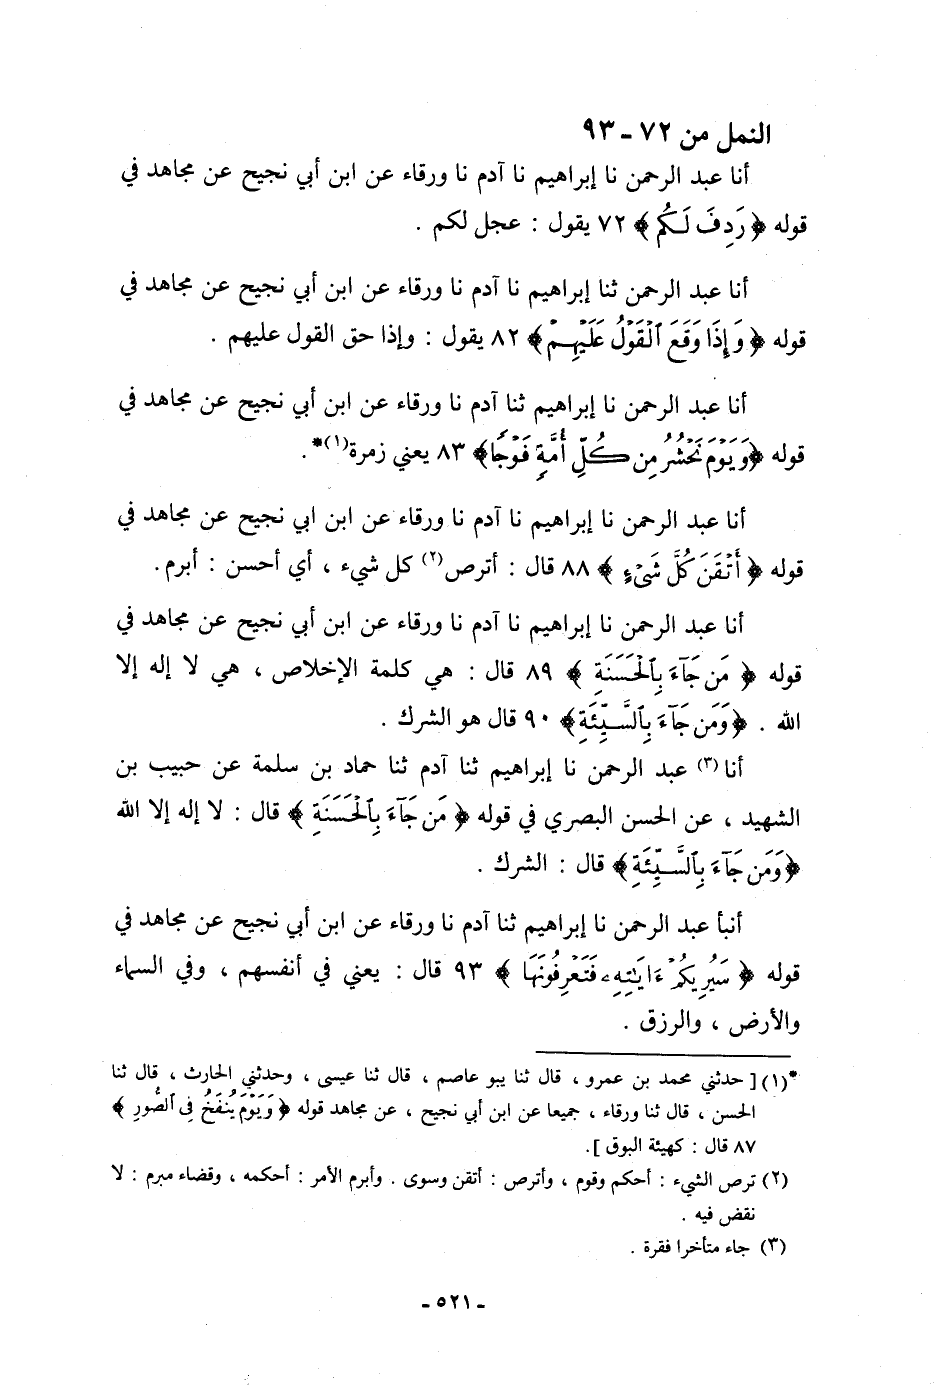 النمل من ٧٢ - ٩٣
أنا عبد الرحمن نا إبراهيم نا آدم نا ورقاء عن ابن أبي نجيح عن مجاهد في
قوله ﴿ رَدِفَ لَكُم ﴾ ٧٢ يقول : عجل لكم .
أنا عبد الرحمن ثنا إبراهيم نا آدم نا ورقاء عن ابن أبي نجيح عن مجاهد في
قوله ﴿ وَإِذَا وَقَعَ ٱلْقَوْلُ عَلَيْهِمْ ﴾ ٨٢ يقول : وإذا حق القول عليهم .
أنا عبد الرحمن نا إبراهيم ثنا آدم نا ورقاء عن ابن أبي نجيح عن مجاهد في
قوله ﴿وَيَوْمَ نَحْشُرُ مِن كُلِّ أُمَّةٍ فَوْجًا﴾ ٨٣ يعني زمرة(١)* .
أنا عبد الرحمن نا إبراهيم نا آدم نا ورقاء عن ابن ابي نجيح عن مجاهد في
قوله ﴿ أَتْقَنَ كُلَّ شَىْءٍ ﴾ ٨٨ قال : أترص(٢) كل شيء ، أي أحسن : أبرم .
أنا عبد الرحمن نا إبراهيم نا آدم نا ورقاء عن ابن أبي نجيح عن مجاهد في
قوله ﴿ مَن جَآءَ بِٱلْحَسَنَةِ ﴾ ٨٩ قال : هي كلمة الإخلاص ، هي لا إله إلا
الله . ﴿وَمَن جَآءَ بِٱلسَّيِّئَةِ﴾ ٩٠ قال هو الشرك .
أنا(٣) عبد الرحمن نا إبراهيم ثنا آدم ثنا حماد بن سلمة عن حبيب بن
الشهيد ، عن الحسن البصري في قوله ﴿ مَن جَآءَ بِٱلْحَسَنَةِ ﴾ قال : لا إله إلا الله
﴿وَمَن جَآءَ بِٱلسَّيِّئَةِ﴾ قال : الشرك .
أنبأ عبد الرحمن نا إبراهيم ثنا آدم نا ورقاء عن ابن أبي نجيح عن مجاهد في
قوله ﴿ سَيُرِيكُمْ ءَايَٰتِهِۦ فَتَعْرِفُونَهَا ﴾ ٩٣ قال : يعني في أنفسهم ، وفي السماء
والأرض ، والرزق .
*(١) [ حدثني محمد بن عمرو ، قال ثنا يبو عاصم ، قال ثنا عيسى ، وحدثني الحارث ، قال ثنا
الحسن ، قال ثنا ورقاء ، جميعا عن ابن أبي نجيح ، عن مجاهد قوله ﴿ وَيَوْمَ يُنفَخُ فِى ٱلصُّورِ ﴾
٨٧ قال : كهيئة البوق ] .
(٢) ترص الشيء : أحكم وقوم ، وأترص : أتقن وسوى . وأبرم الأمر : أحكمه ، وقضاء مبرم : لا
نقض فيه .
(٣) جاء متأخرا فقرة .
- ٥٢١ -